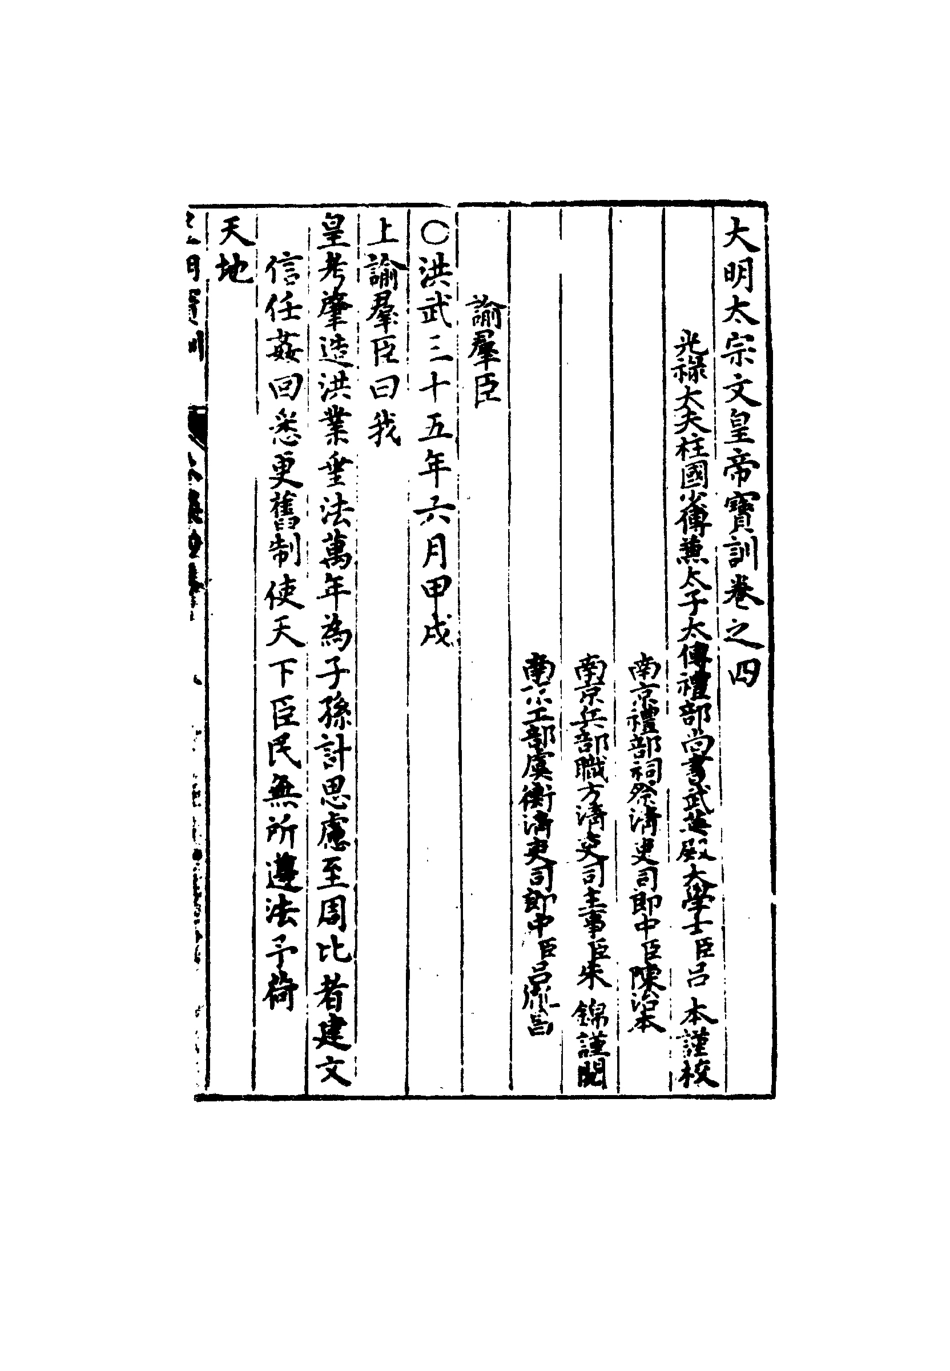 大明太宗文皇帝寶訓卷之四
光祿大夫柱國少傅兼太子太傅禮部尚書武英殿大學士臣呂本謹校
南京禮部祠祭清吏司郎中臣陳治本
南京兵部職方清吏司主事臣朱錦謹閱
南京工部虞衡清吏司郎中臣呂胤昌
諭羣臣
○洪武三十五年六月甲戌
上諭羣臣曰我
皇考肇造洪業垂法萬年為子孫計思慮至周比者建文
信任姦回悉更舊制使天下臣民無所遵法予荷
天地